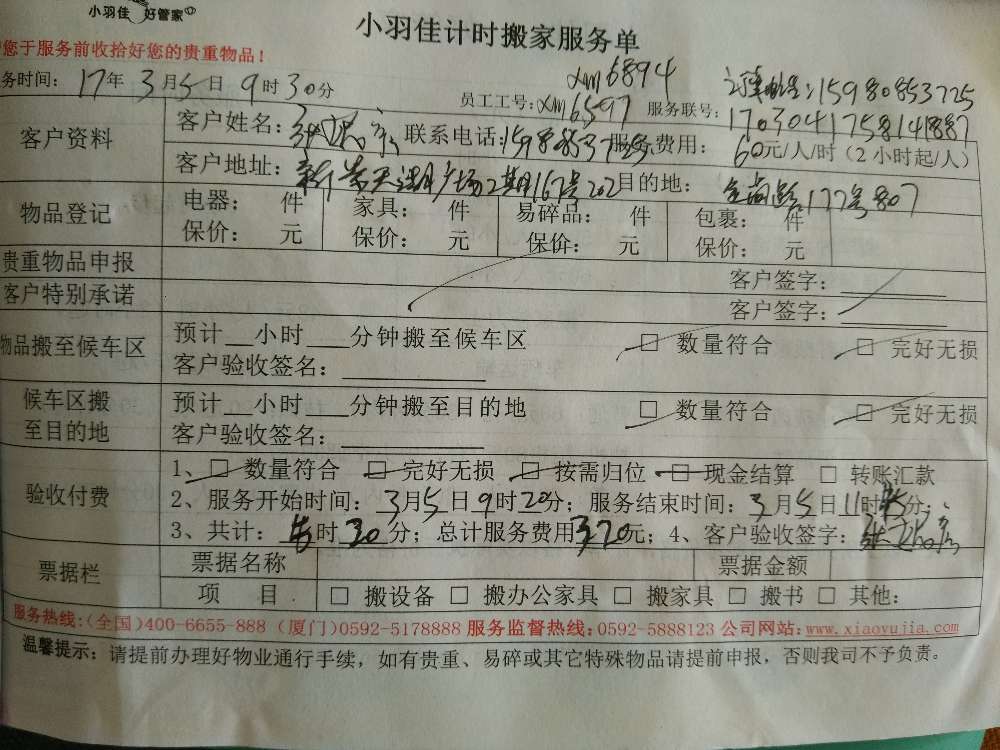 小羽佳 好管家
小羽佳计时搬家服务单
您于服务前收拾好您的贵重物品！
务时间：17年3月5日9时30分
xm6894
员工工号：xm6597 服务联号：
15980853725
1703041758141887
客户资料
客户姓名： 联系电话：15980853725 服务费用：60元/人/时（2小时起/人）
客户地址：新景天湖广场2期167号202 目的地：177号807
物品登记
电器： 件 家具： 件 易碎品： 件 包裹： 件
保价： 元 保价： 元 保价： 元 保价： 元
贵重物品申报 客户签字：
客户特别承诺 客户签字：
物品搬至候车区
预计__小时___分钟搬至候车区 □ 数量符合 □ 完好无损
客户验收签名：
候车区搬至目的地
预计__小时___分钟搬至目的地 □ 数量符合 □ 完好无损
客户验收签名：
验收付费
1、□ 数量符合 □ 完好无损 □ 按需归位 □ 现金结算 □ 转账汇款
2、服务开始时间：3月5日9时20分；服务结束时间：3月5日11时分；
3、共计：时30分；总计服务费用320元；4、客户验收签字：
票据栏
票据名称 票据金额
项 目 □ 搬设备 □ 搬办公家具 □ 搬家具 □ 搬书 □ 其他：
服务热线：(全国)400-6655-888 (厦门)0592-5178888 服务监督热线：0592-5888123 公司网站：www.xiaoyujia.com
温馨提示：请提前办理好物业通行手续，如有贵重、易碎或其它特殊物品请提前申报，否则我司不予负责。